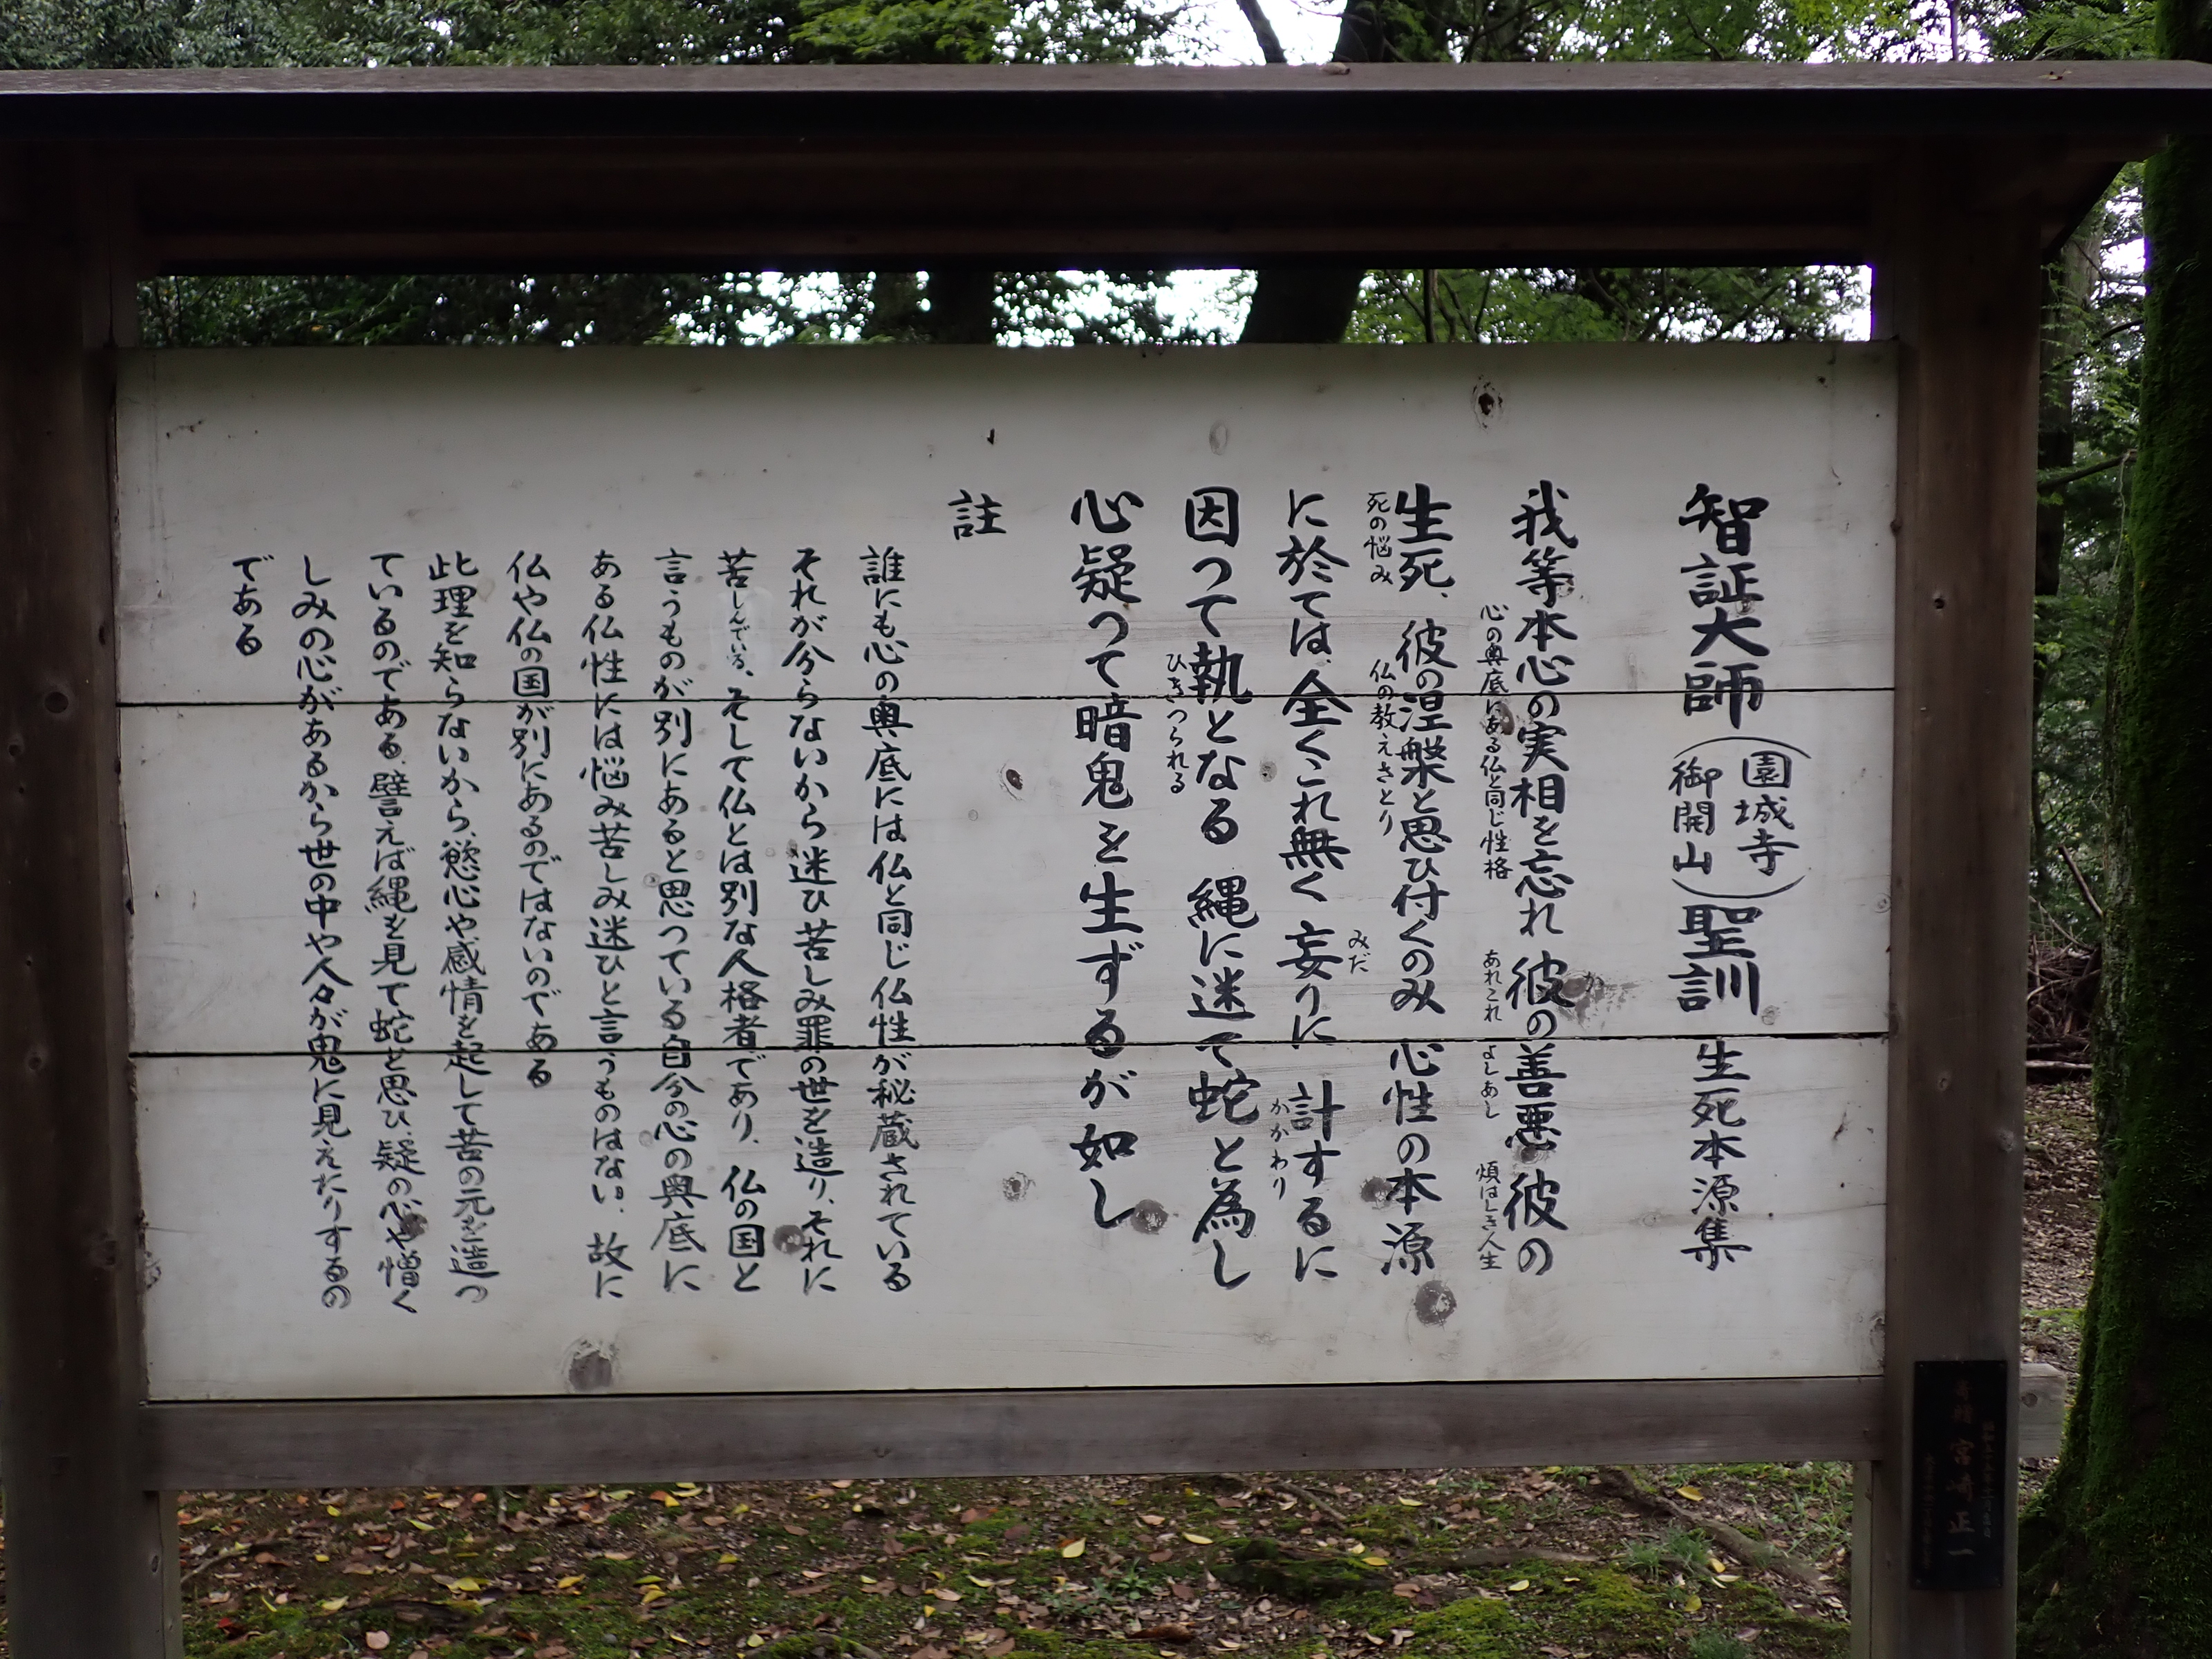 智証大師(園城寺御開山)聖訓 生死本源集
我等本心の実相を忘れ 彼の善悪 彼の
心の奥底にある仏と同じ性格
か
あれこれ
よしあし
煩はしき人生
生死、彼の涅槃と思ひ付くのみ 心性の本源
死の悩み
仏の教えさとり
に於ては、全くこれ無く 妄りに 計するに
みだ
かかわり
因つて執となる 縄に迷て蛇と為し
ひきつられる
心疑つて暗鬼を生ずるが如し
註
誰にも心の奥底には仏と同じ仏性が秘蔵されている
それが分らないから迷ひ苦しみ罪の世を造り、それに
苦しんでいる、そして仏とは別な人格者であり、仏の国と
言うものが別にあると思つている自分の心の奥底に
ある仏性には悩み苦しみ迷ひと言うものはない、故に
仏や仏の国が別にあるのではないのである
此理を知らないから、慾心や感情を起して苦の元を造つ
ているのである、譬えば縄を見て蛇と思ひ疑の心や憎く
しみの心があるから世の中や人々が鬼に見えたりするの
である
宮崎正一